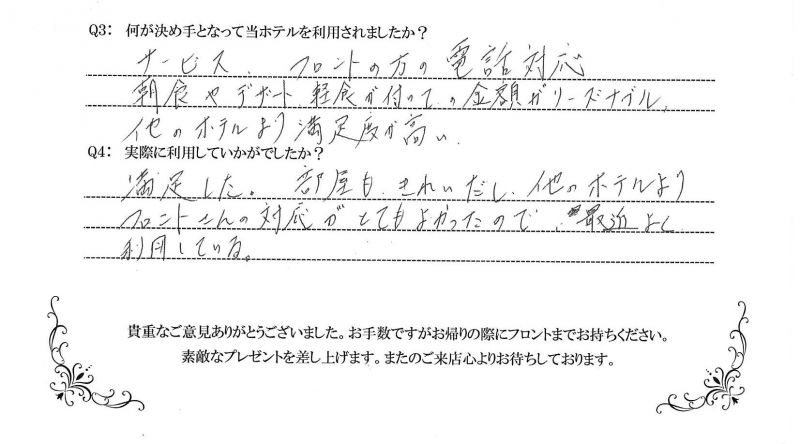 Q3: 何が決め手となって当ホテルを利用されましたか？
サービス、フロントの方の電話対応
朝食やデザート、軽食が付いての金額がリーズナブル、
他のホテルより満足度が高い、
Q4: 実際に利用していかがでしたか？
満足した。部屋もきれいだし、他のホテルより
フロントさんの対応がとてもよかったので、最近よく
利用している。
貴重なご意見ありがとうございました。お手数ですがお帰りの際にフロントまでお持ちください。
素敵なプレゼントを差し上げます。またのご来店心よりお待ちしております。